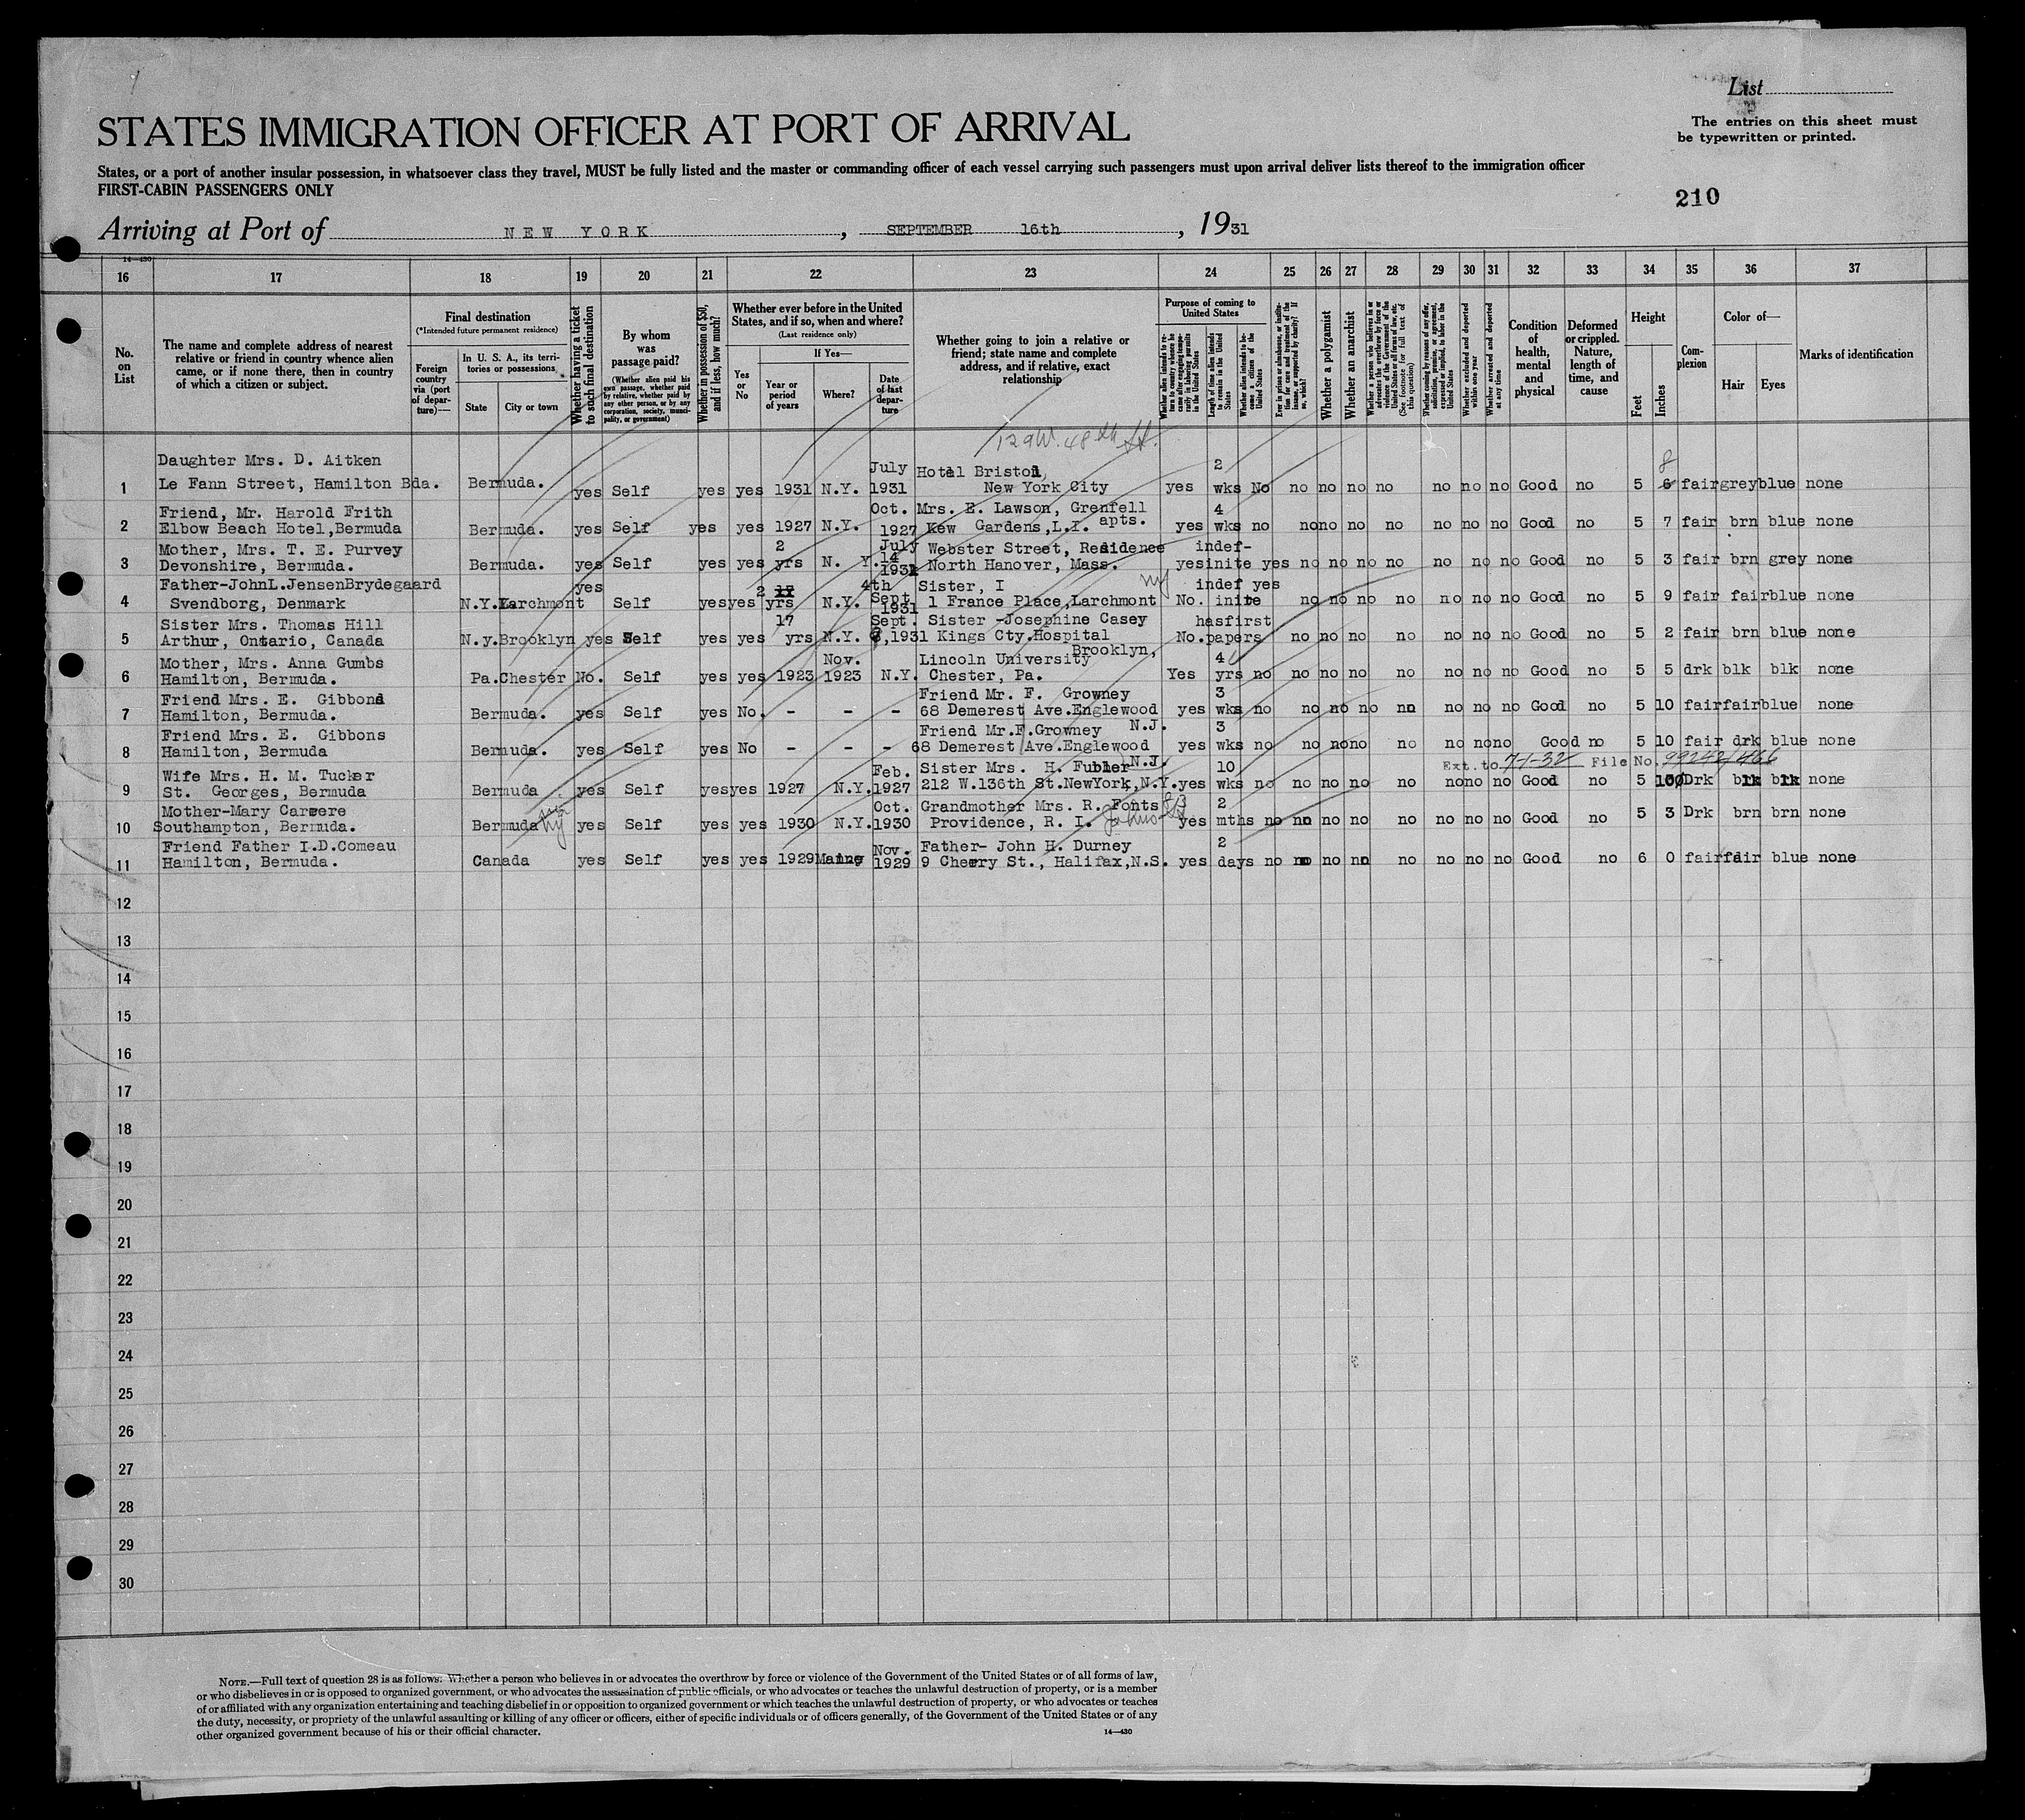 List
STATES IMMIGRATION OFFICER AT PORT OF ARRIVAL
The entries on this sheet must
be typewritten or printed.
States, or a port of another insular possession, in whatsoever class they travel, MUST be fully listed and the master or commanding officer of each vessel carrying such passengers must upon arrival deliver lists thereof to the immigration officer
FIRST-CABIN PASSENGERS ONLY
210
Arriving at Port of NEW YORK, SEPTEMBER 16th, 1931
14—430
16 17 18 19 20 21 22 23 24 25 26 27 28 29 30 31 32 33 34 35 36 37
No. on List
The name and complete address of nearest relative or friend in country whence alien came, or if none there, then in country of which a citizen or subject.
Final destination
(*Intended future permanent residence)
Foreign country via (port of departure)—
In U. S. A., its territories or possessions
State
City or town
Whether having a ticket to such final destination
By whom was passage paid?
(Whether alien paid his own passage, whether paid by relative, whether paid by any other person, or by any corporation, society, municipality, or government)
Whether in possession of $50, and if less, how much?
Whether ever before in the United States, and if so, when and where?
(Last residence only)
Yes or No
If Yes—
Year or period of years
Where?
Date of last departure
Whether going to join a relative or friend; state name and complete address, and if relative, exact relationship
Purpose of coming to United States
Whether alien intends to return to country whence he came after engaging temporarily in laboring pursuits in the United States
Length of time alien intends to remain in the United States
Whether alien intends to become a citizen of the United States
Ever in prison or almshouse, or institution for care and treatment of the insane, or supported by charity? If so, which?
Whether a polygamist
Whether an anarchist
Whether a person who believes in or advocates the overthrow by force or violence of the Government of the United States or all forms of law, etc. (See footnote for full text of this question)
Whether coming by reasons of any offer, solicitation, promise, or agreement, expressed or implied, to labor in the United States
Whether excluded and deported within one year
Whether arrested and deported at any time
Condition of health, mental and physical
Deformed or crippled. Nature, length of time, and cause
Height
Feet
Inches
Complexion
Color of—
Hair
Eyes
Marks of identification
129 W. 48th St.
Daughter Mrs. D. Aitken July Hotel Bristol, 2 8
1 Le Fann Street, Hamilton Bda. Bermuda. yes Self yes yes 1931 N.Y. 1931 New York City yes wks No no no no no no no no Good no 5 6 fair grey blue none
Friend, Mr. Harold Frith Oct. Mrs. E. Lawson, Grenfell 4
2 Elbow Beach Hotel, Bermuda Bermuda. yes Self yes yes 1927 N.Y. 1927 Kew Gardens, L.I. apts. yes wks no no no no no no no no Good no 5 7 fair brn blue none
Mother, Mrs. T. E. Purvey 2 July 14 Webster Street, Residence indef-
3 Devonshire, Bermuda. Bermuda. yes Self yes yes yrs N. Y. 1931 North Hanover, Mass. yes inite yes no no no no no no no Good no 5 3 fair brn grey none
Father-John L. Jensen Brydegaard yes 2 17 4th Sister, I ny indef yes
4 Svendborg, Denmark N.Y. Larchmont Self yes yes yrs N.Y. Sept. 1931 1 France Place, Larchmont No. inite no no no no no no no Good no 5 9 fair fair blue none
Sister Mrs. Thomas Hill 17 Sept. Sister -Josephine Casey has first
5 Arthur, Ontario, Canada N.y. Brooklyn yes Self yes yes yrs N.Y. ,1931 Kings Cty. Hospital No. papers no no no no no no no Good no 5 2 fair brn blue none
Brooklyn,
Mother, Mrs. Anna Gumbs Nov. Lincoln University 4
6 Hamilton, Bermuda. Pa. Chester No. Self yes yes 1923 1923 N.Y. Chester, Pa. Yes yrs no no no no no no no no Good no 5 5 drk blk blk none
Friend Mrs. E. Gibbons Friend Mr. F. Growney 3
7 Hamilton, Bermuda. Bermuda. yes Self yes No. - - - 68 Demerest Ave. Englewood yes wks no no no no no no no no Good no 5 10 fair fair blue none
N.J.
Friend Mrs. E. Gibbons Friend Mr. F. Growney 3
8 Hamilton, Bermuda Bermuda. yes Self yes No - - - 68 Demerest Ave. Englewood yes wks no no no no no no no no Good no 5 10 fair drk blue none
N.J. Ext. to 7-1-32 File No. 99242/466
Wife Mrs. H. M. Tucker Feb. Sister Mrs. H. Fubler 10
9 St. Georges, Bermuda Bermuda yes Self yes yes 1927 N.Y. 1927 212 W. 136th St. New York, N.Y. yes wks no no no no no no no no Good no 5 10 Drk blk blk none
Mother-Mary Carere Oct. Grandmother Mrs. R. Fonts 2
10 Southampton, Bermuda. Bermuda yes Self yes yes 1930 N.Y. 1930 Providence, R. I. yes mths no no no no no no no no Good no 5 3 Drk brn brn none
Friend Father I.D. Comeau Nov. Father- John H. Durney 2
11 Hamilton, Bermuda. Canada yes Self yes yes 1929 Maine 1929 9 Cherry St., Halifax, N.S. yes days no no no no no no no no Good no 6 0 fair fair blue none
12
13
14
15
16
17
18
19
20
21
22
23
24
25
26
27
28
29
30
NOTE.—Full text of question 28 is as follows: Whether a person who believes in or advocates the overthrow by force or violence of the Government of the United States or of all forms of law,
or who disbelieves in or is opposed to organized government, or who advocates the assassination of public officials, or who advocates or teaches the unlawful destruction of property, or is a member
of or affiliated with any organization entertaining and teaching disbelief in or opposition to organized government or which teaches the unlawful destruction of property, or who advocates or teaches
the duty, necessity, or propriety of the unlawful assaulting or killing of any officer or officers, either of specific individuals or of officers generally, of the Government of the United States or of any
other organized government because of his or their official character.
14—430